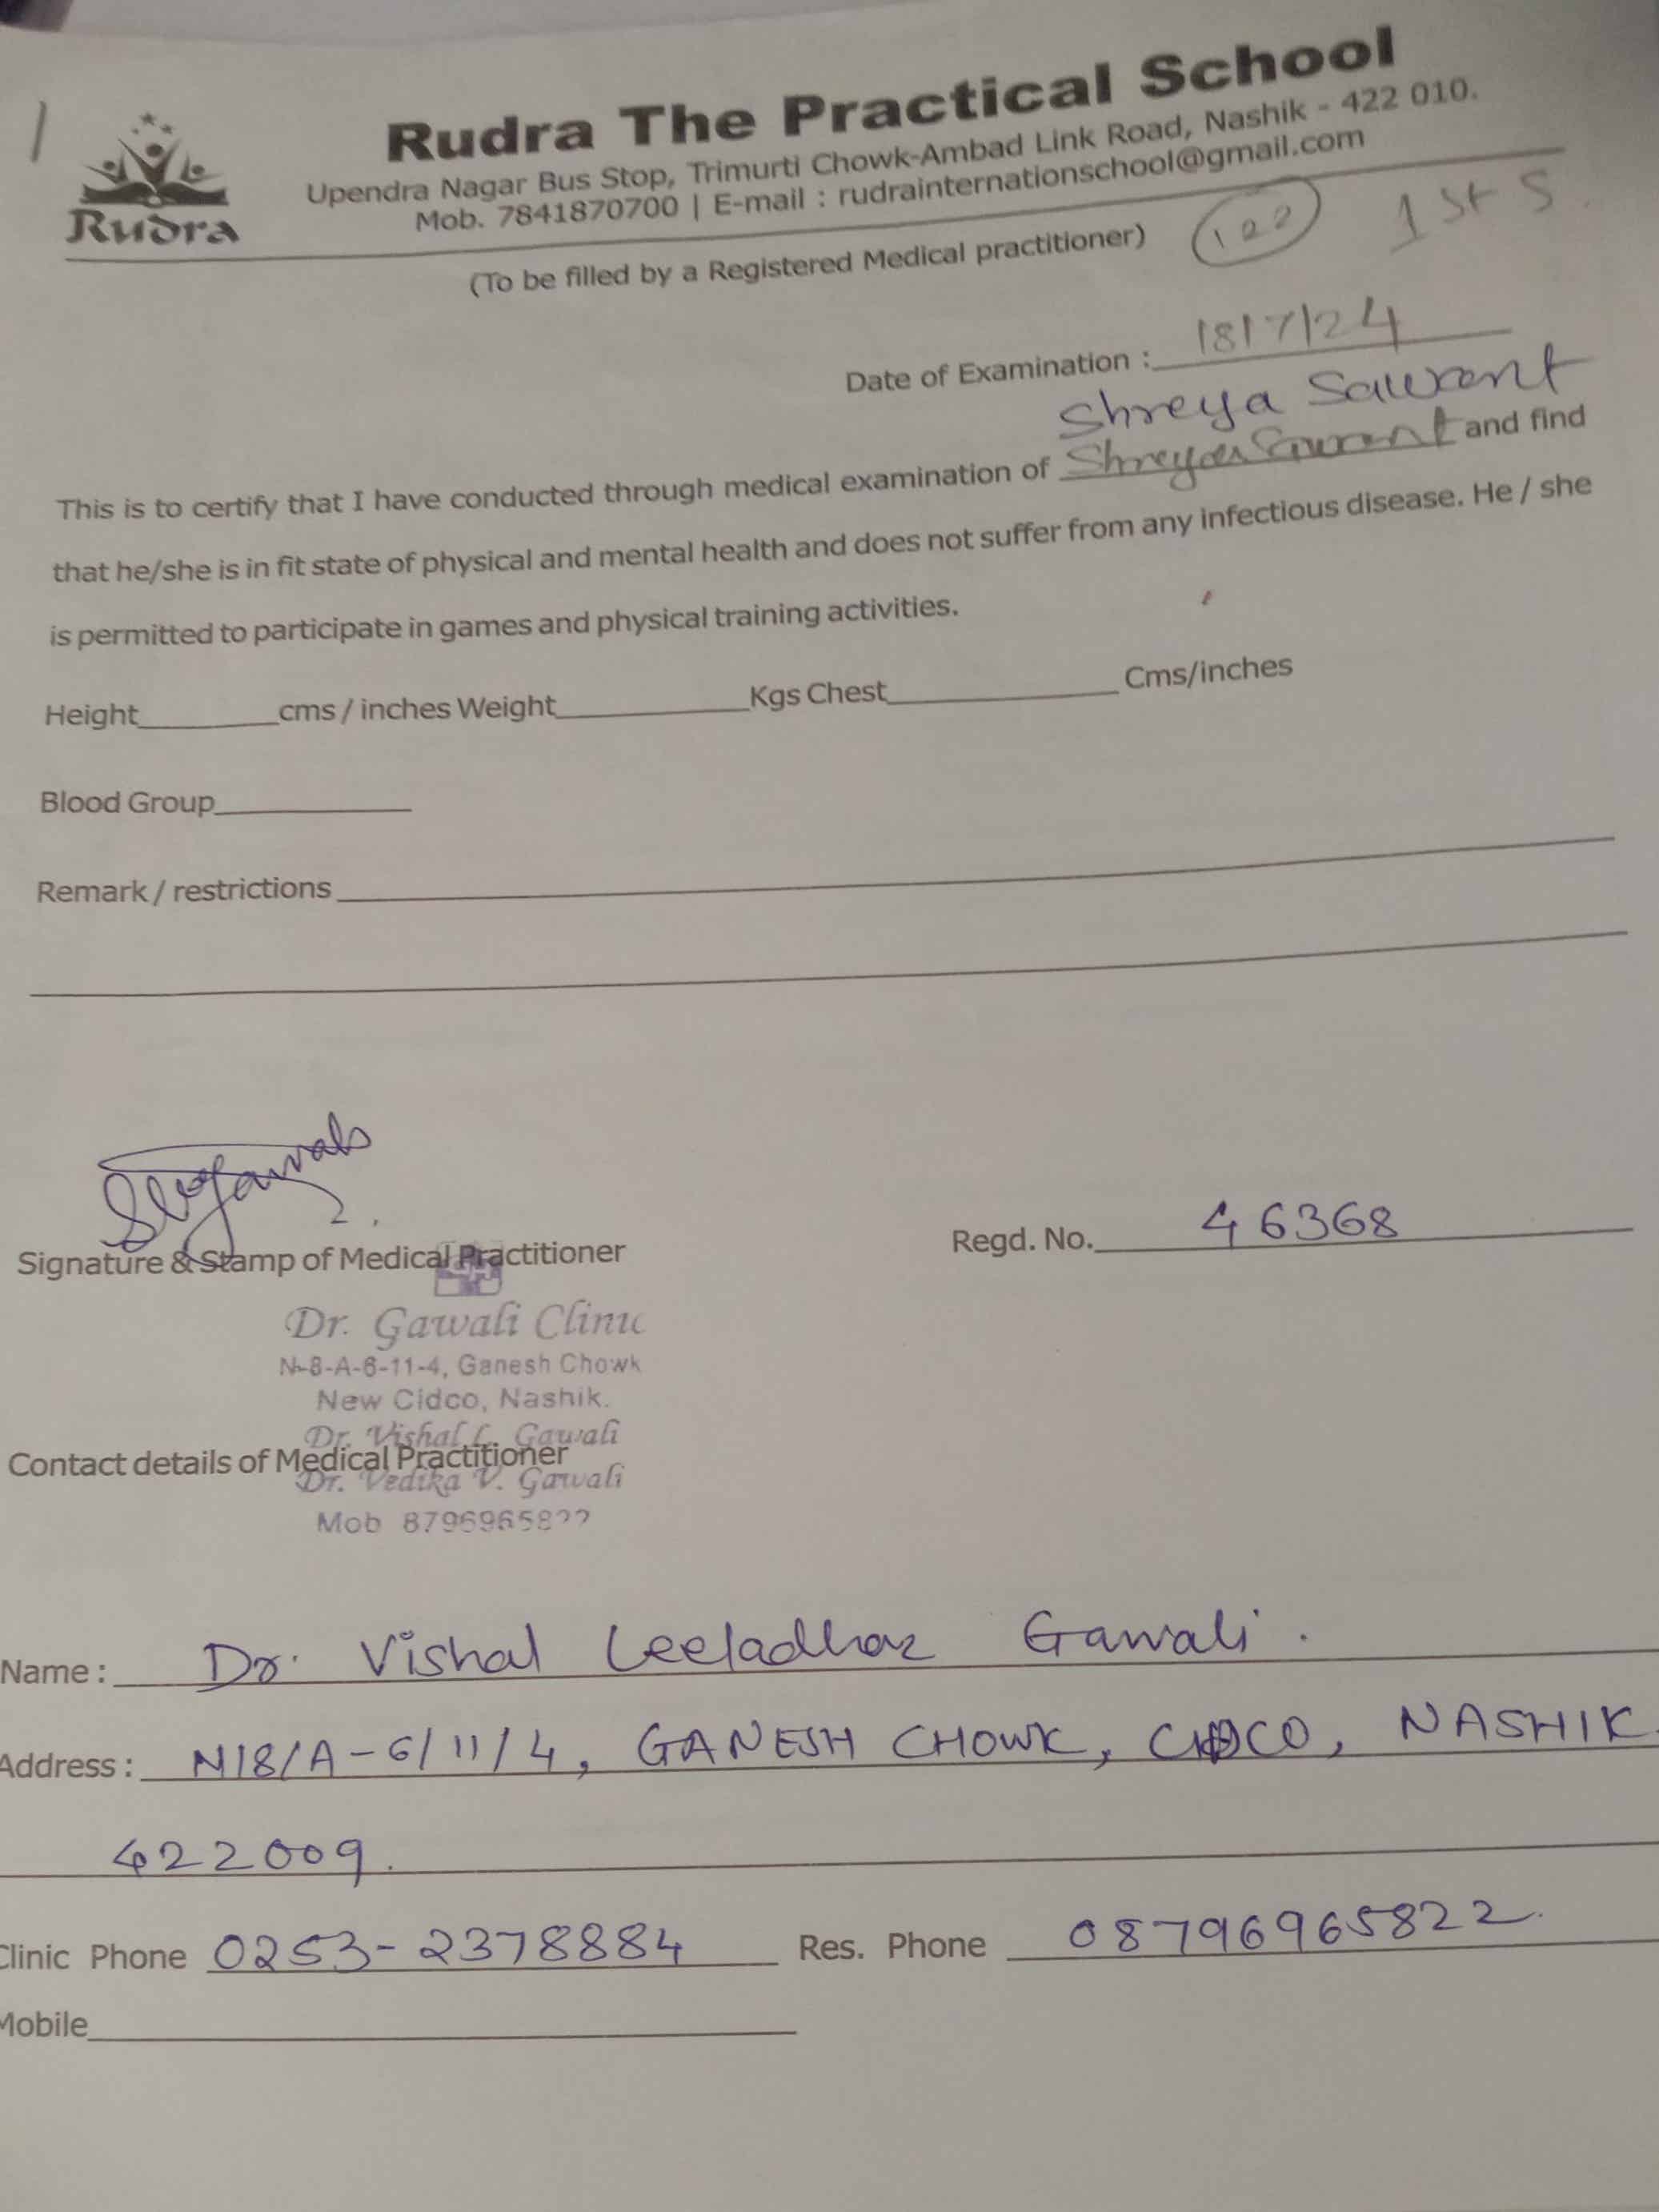 Rudra The Practical School
Rudra
Upendra Nagar Bus Stop, Trimurti Chowk-Ambad Link Road, Nashik - 422 010.
Mob. 7841870700 | E-mail : rudrainternationschool@gmail.com
(To be filled by a Registered Medical practitioner)
122
1st S
Date of Examination : 18/7/24
Shreya Sawant
This is to certify that I have conducted through medical examination of Shreya Sawant and find
that he/she is in fit state of physical and mental health and does not suffer from any infectious disease. He / she
is permitted to participate in games and physical training activities.
Height cms / inches Weight Kgs Chest Cms/inches
Blood Group
Remark / restrictions
Signature & Stamp of Medical Practitioner
Regd. No. 46368
Dr. Gawali Clinic
N-8-A-6-11-4, Ganesh Chowk
New Cidco, Nashik.
Dr. Vishal L. Gawali
Contact details of Medical Practitioner
Dr. Vedika V. Gawali
Mob 87969658??
Name : Dr. Vishal Leeladhar Gawali.
Address : N18/A-6/11/4, GANESH CHOWK, CIDCO, NASHIK
422009.
Clinic Phone 0253-2378884 Res. Phone 08796965822.
Mobile